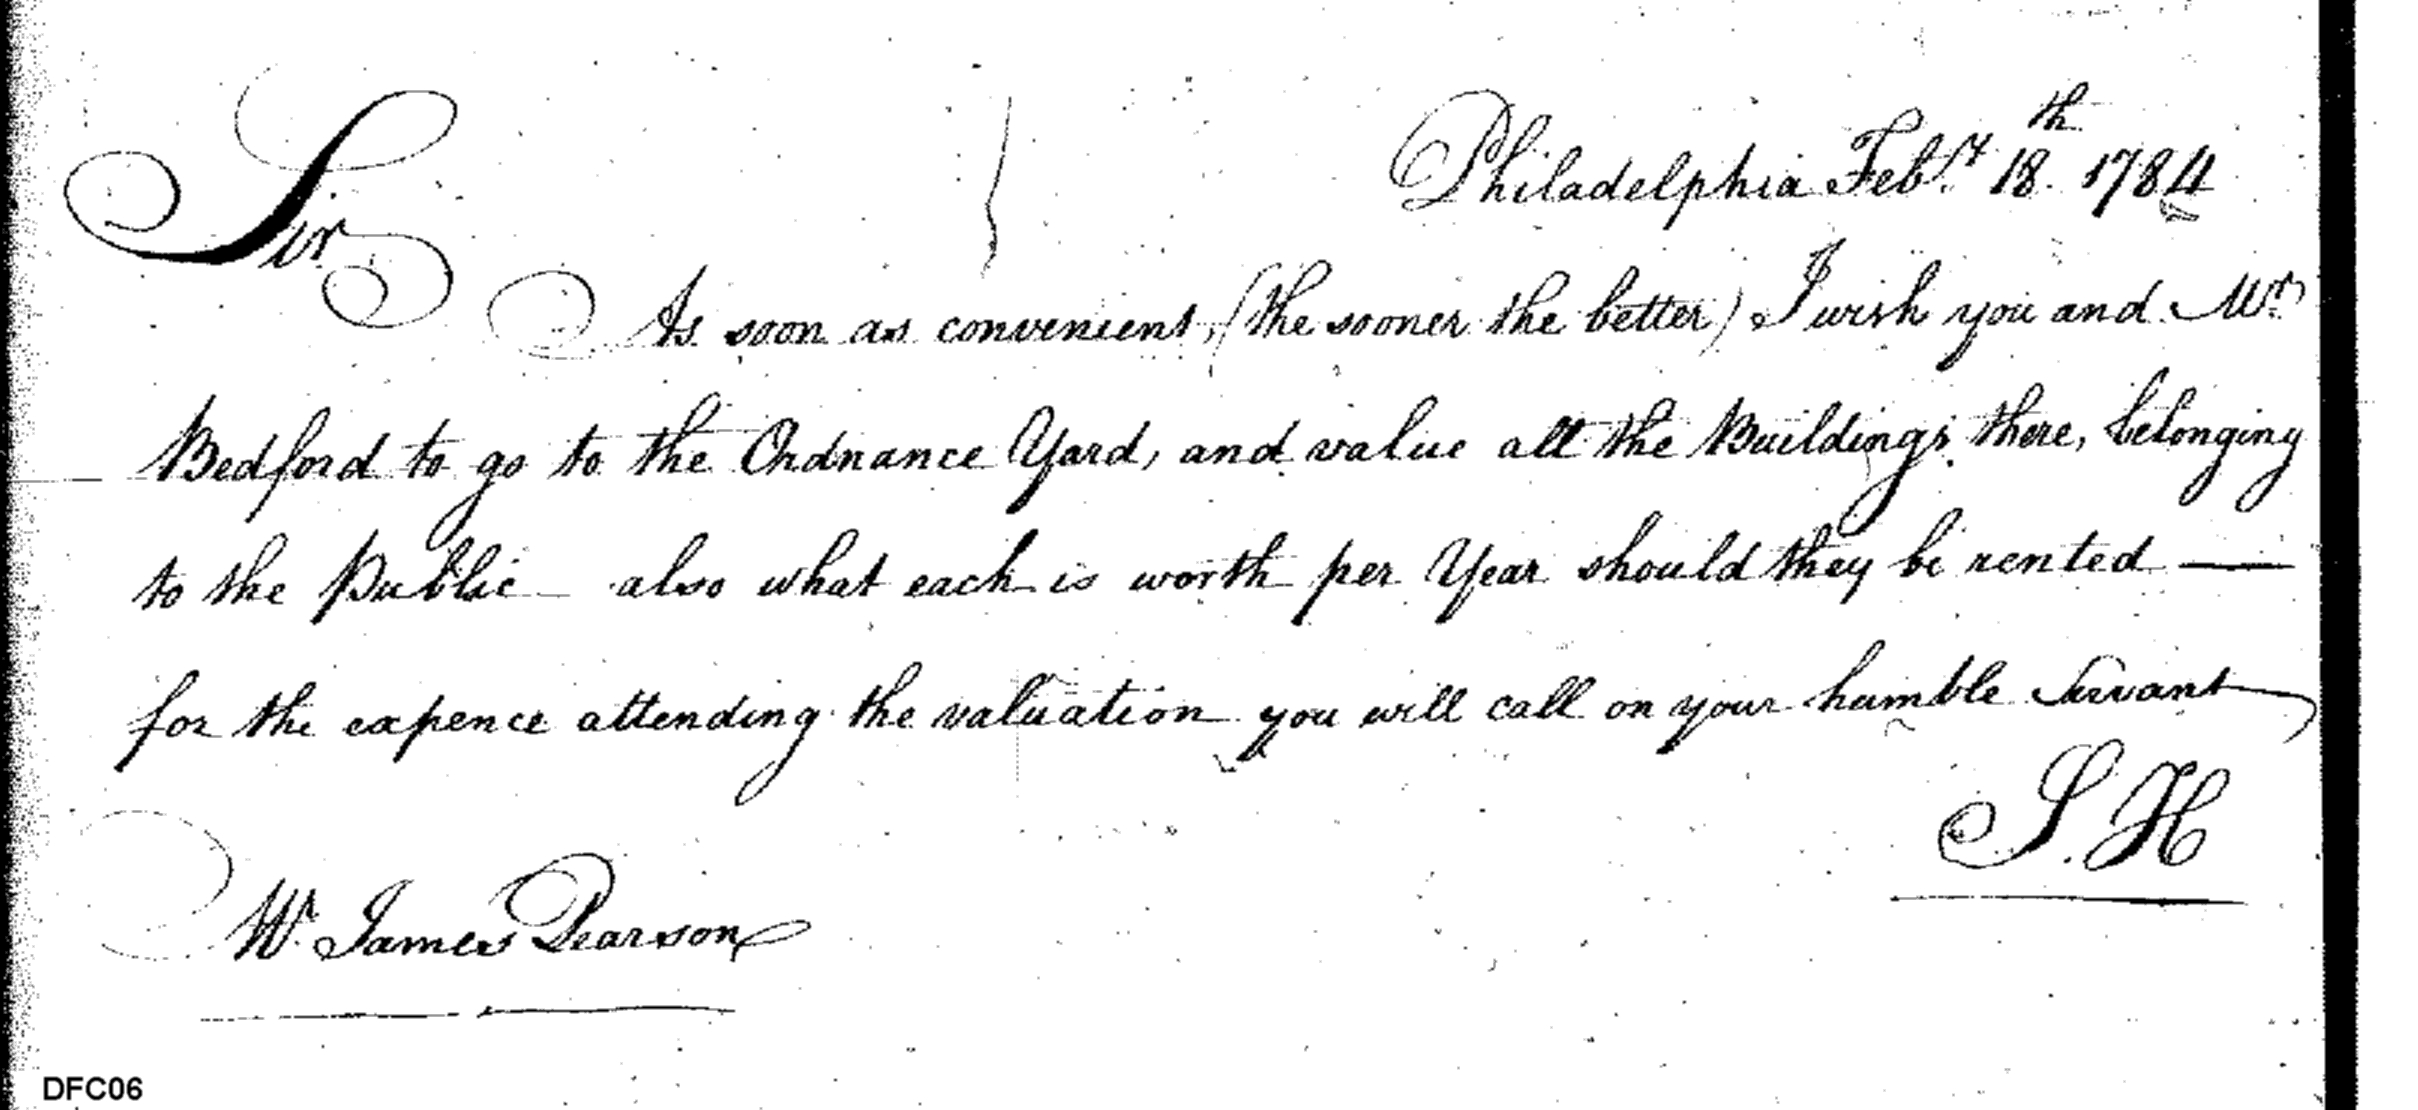 Philadelphia Feby. 18th. 1784
Sir
As soon as convenient, (the sooner the better) I wish you and Mr.
Bedford to go to the Ordnance Yard, and value all the Buildings there, belonging
to the Public – also what each is worth per Year should they be rented —
for the expence attending the valuation you will call on your humble Servant
S. H
Mr. James Pearson
DFC06